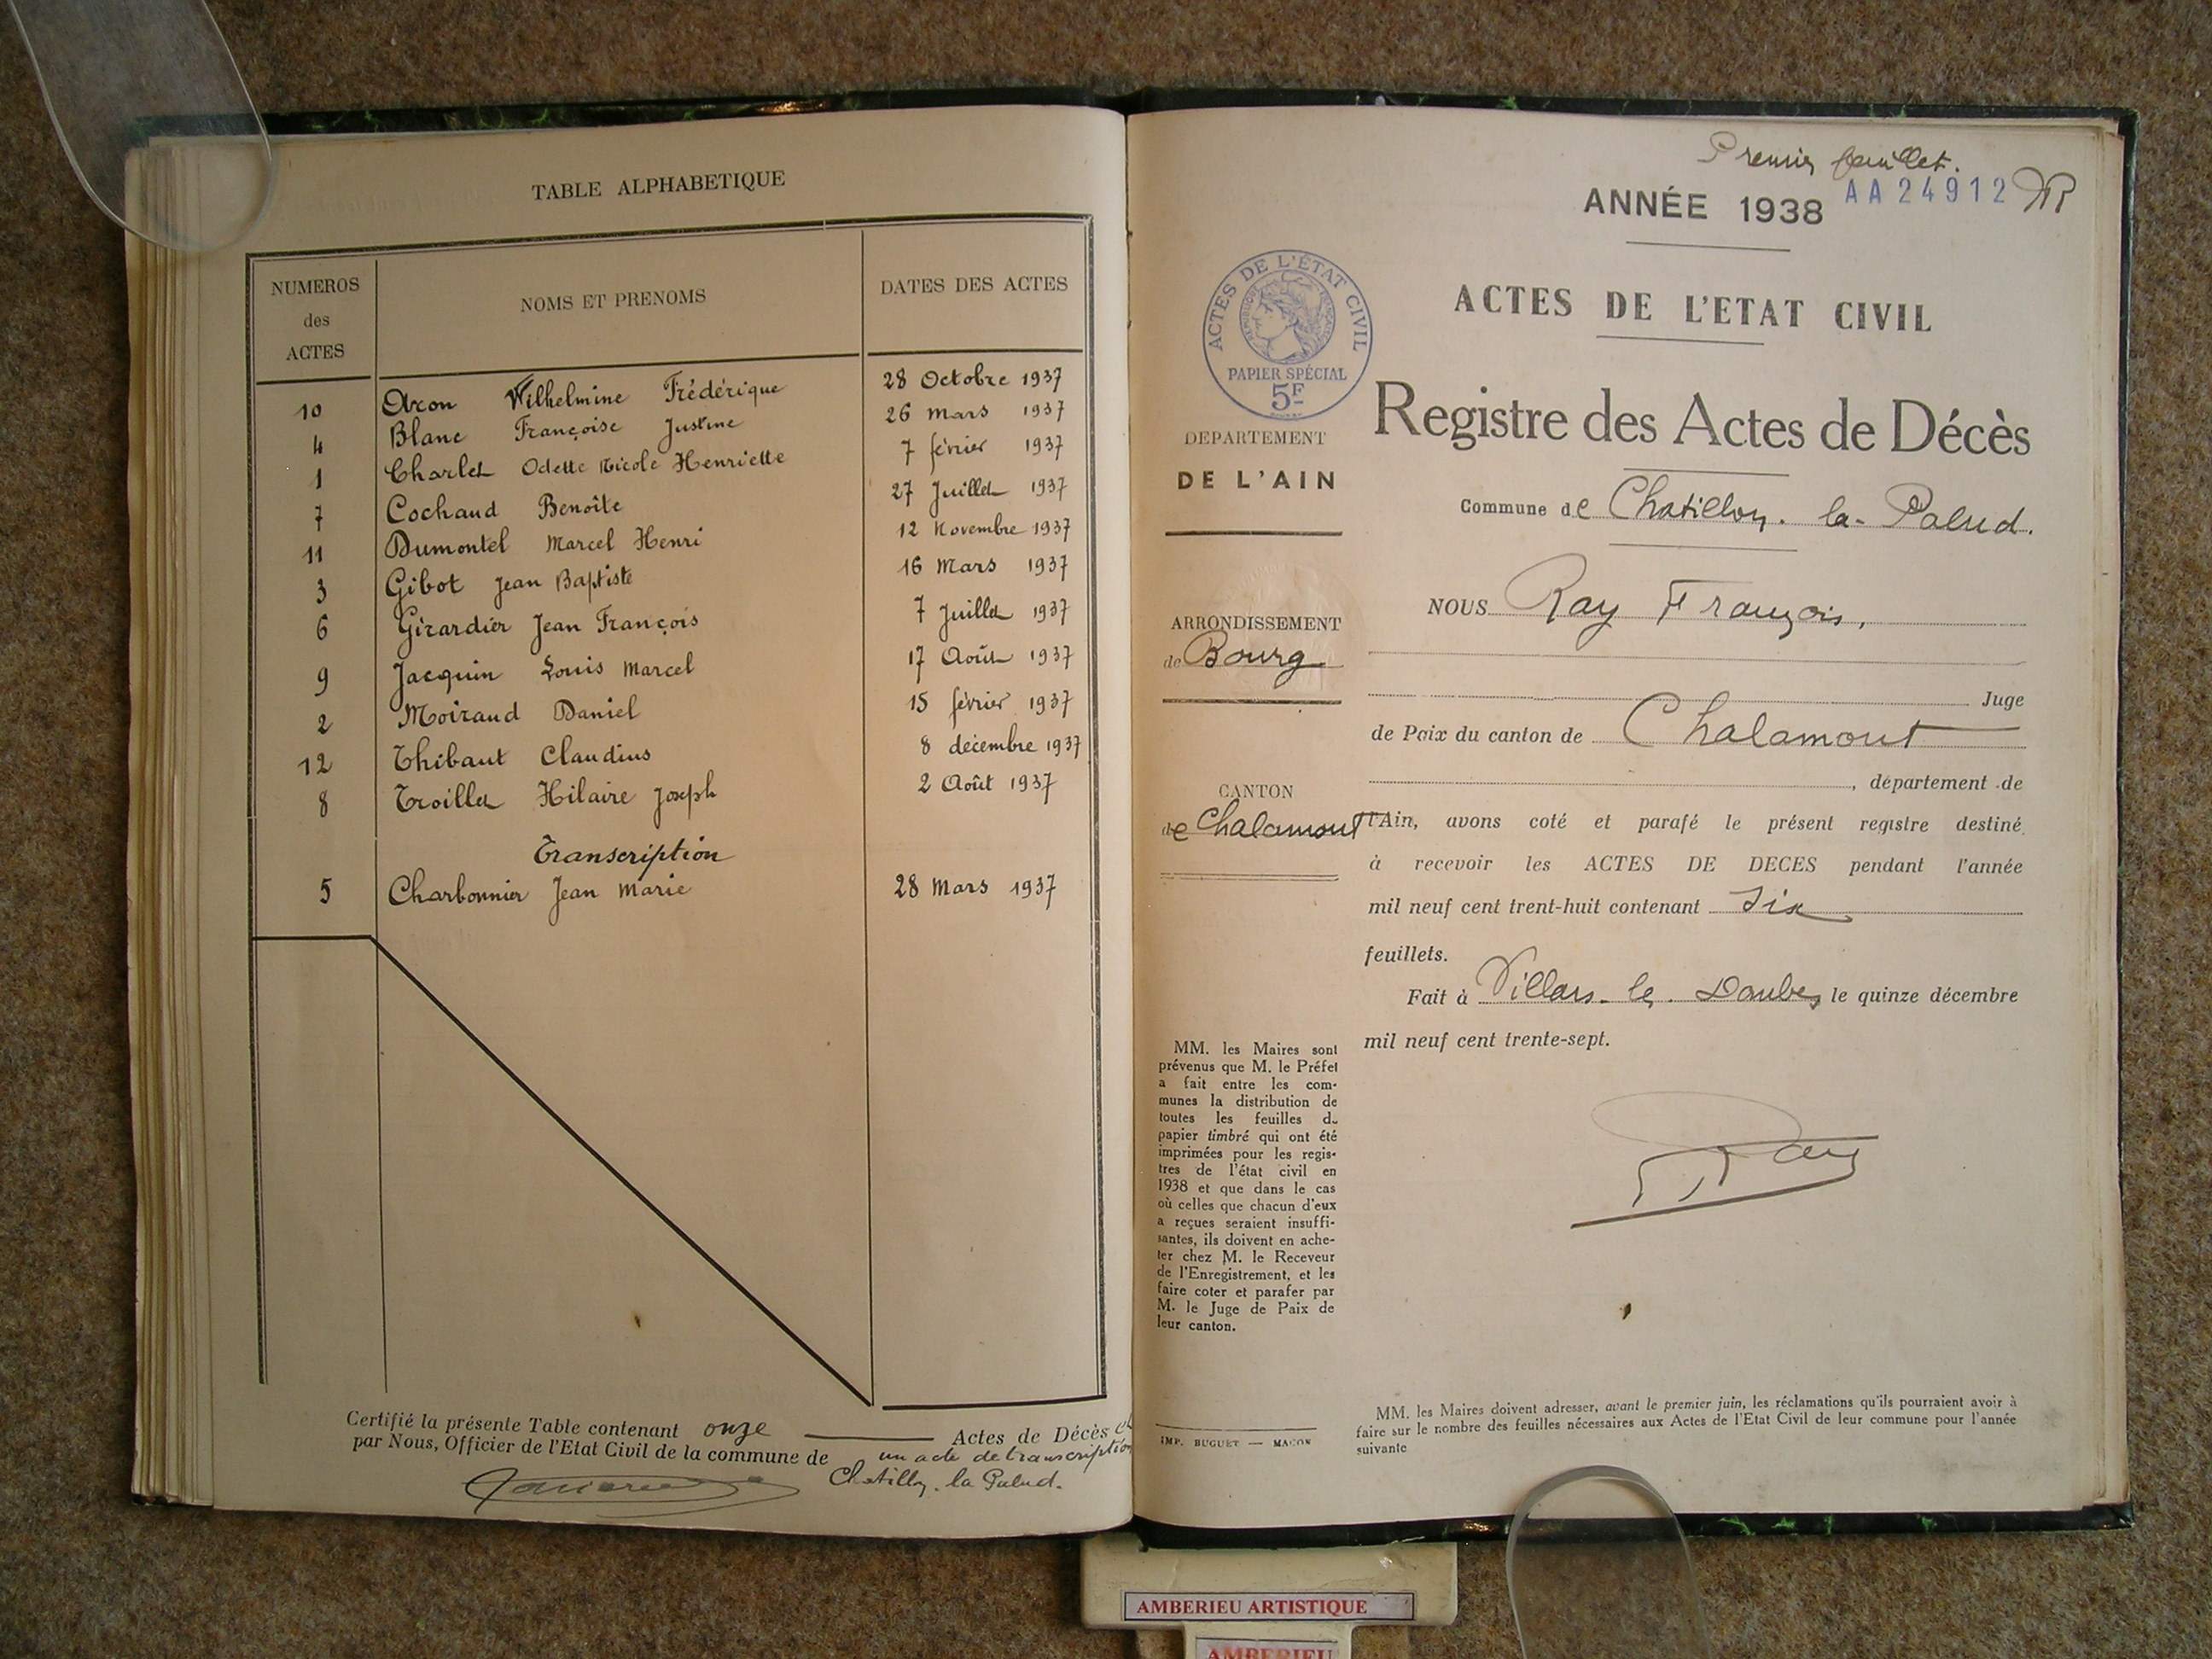 TABLE ALPHABETIQUE
NUMEROS des ACTES NOMS ET PRENOMS DATES DES ACTES
10 Axon Wilhelmine Frédérique 28 Octobre 1937
4 Blanc Françoise Justine 26 Mars 1937
1 Charlet Odette Nicole Henriette 7 février 1937
7 Cochaud Benoîte 27 Juillet 1937
11 Dumontel Marcel Henri 12 Novembre 1937
3 Gibot Jean Baptiste 16 Mars 1937
6 Girardier Jean François 7 Juillet 1937
9 Jacquin Louis Marcel 17 Août 1937
2 Moiraud Daniel 15 février 1937
12 Thibaut Claudius 8 décembre 1937
8 Troillet Hilaire Joseph 2 Août 1937
Transcription
5 Charbonnier Jean Marie 28 Mars 1937
Certifié la présente Table contenant onze Actes de Décès et
par Nous, Officier de l'Etat Civil de la commune de un acte de transcription
Chatillon. la Palud.
Premier feuillet.
ANNÉE 1938 AA24912
ACTES DE L'ÉTAT CIVIL
RÉPUBLIQUE FRANÇAISE
PAPIER SPÉCIAL
5F
ACTES DE L'ETAT CIVIL
Registre des Actes de Décès
DEPARTEMENT
DE L'AIN
Commune de Chatillon. la. Palud.
ARRONDISSEMENT
de Bourg
CANTON
de Chalamont
NOUS Ray François,
Juge
de Paix du canton de Chalamont
, département de
l'Ain, avons coté et parafé le présent registre destiné
à recevoir les ACTES DE DECES pendant l'année
mil neuf cent trent-huit contenant Six
feuillets.
Fait à Villars. les. Dombes le quinze décembre
mil neuf cent trente-sept.
Ray
MM. les Maires sont
prévenus que M. le Préfet
a fait entre les com-
munes la distribution de
toutes les feuilles du
papier timbré qui ont été
imprimées pour les regis-
tres de l'état civil en
1938 et que dans le cas
où celles que chacun d'eux
a reçues seraient insuffi-
santes, ils doivent en ache-
ter chez M. le Receveur
de l'Enregistrement, et les
faire coter et parafer par
M. le Juge de Paix de
leur canton.
IMP. BUGUET — MACON
MM. les Maires doivent adresser, avant le premier juin, les réclamations qu'ils pourraient avoir à
faire sur le nombre des feuilles nécessaires aux Actes de l'Etat Civil de leur commune pour l'année
suivante
AMBERIEU ARTISTIQUE
AMBERIEU